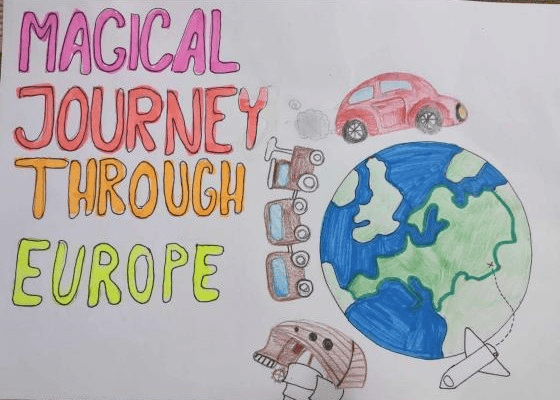 MAGICAL
JOURNEY
THROUGH
EUROPE